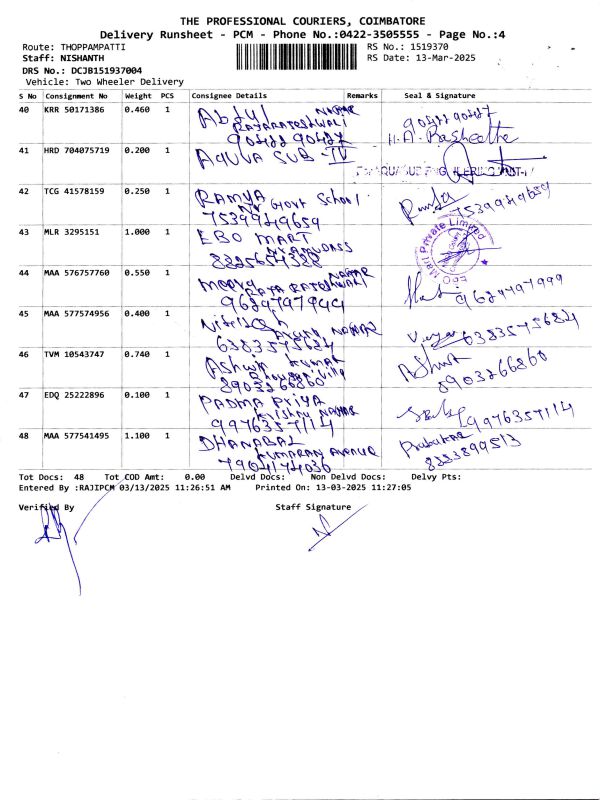 THE PROFESSIONAL COURIERS, COIMBATORE
Delivery Runsheet - PCM - Phone No.:0422-3505555 - Page No.:4
Route: THOPPAMPATTI
RS No.: 1519370
Staff: NISHANTH
RS Date: 13-Mar-2025
DRS No.: DCJB151937004
Vehicle: Two Wheeler Delivery
S No Consignment No Weight PCS Consignee Details Remarks Seal & Signature
40 KRR 50171386 0.460 1 Abdul NAGAR
RAJARAJESHWARI
90422 90427 90422 90427
H.A. Rasheetha
41 HRD 704075719 0.200 1 AQUVA SUB-IV
42 TCG 41578159 0.250 1 RAMYA
Nr Govt School
7539949659 Ramya 7539949659
43 MLR 3295151 1.000 1 EBO MART
EBO Mart Private Limited
44 MAA 576757760 0.550 1 NAGAR
RAJA RAJESHWARI
9629797999 9629797999
45 MAA 577574956 0.400 1 NAGAR
6383575684 6383575684
46 TVM 10543747 0.740 1 Ashwin kumar
8903266860 Ashwi 8903266860
47 EDQ 25222896 0.100 1 PADMA PRIYA
krishna NAGAR
9976357114 9976357114
48 MAA 577541495 1.100 1 DHANABAL
KUMARAN Avenue
7904174036 Prabakar
Tot Docs: 48 Tot COD Amt: 0.00 Delvd Docs: Non Delvd Docs: Delvy Pts:
Entered By :RAJIPCM 03/13/2025 11:26:51 AM Printed On: 13-03-2025 11:27:05
Verified By Staff Signature